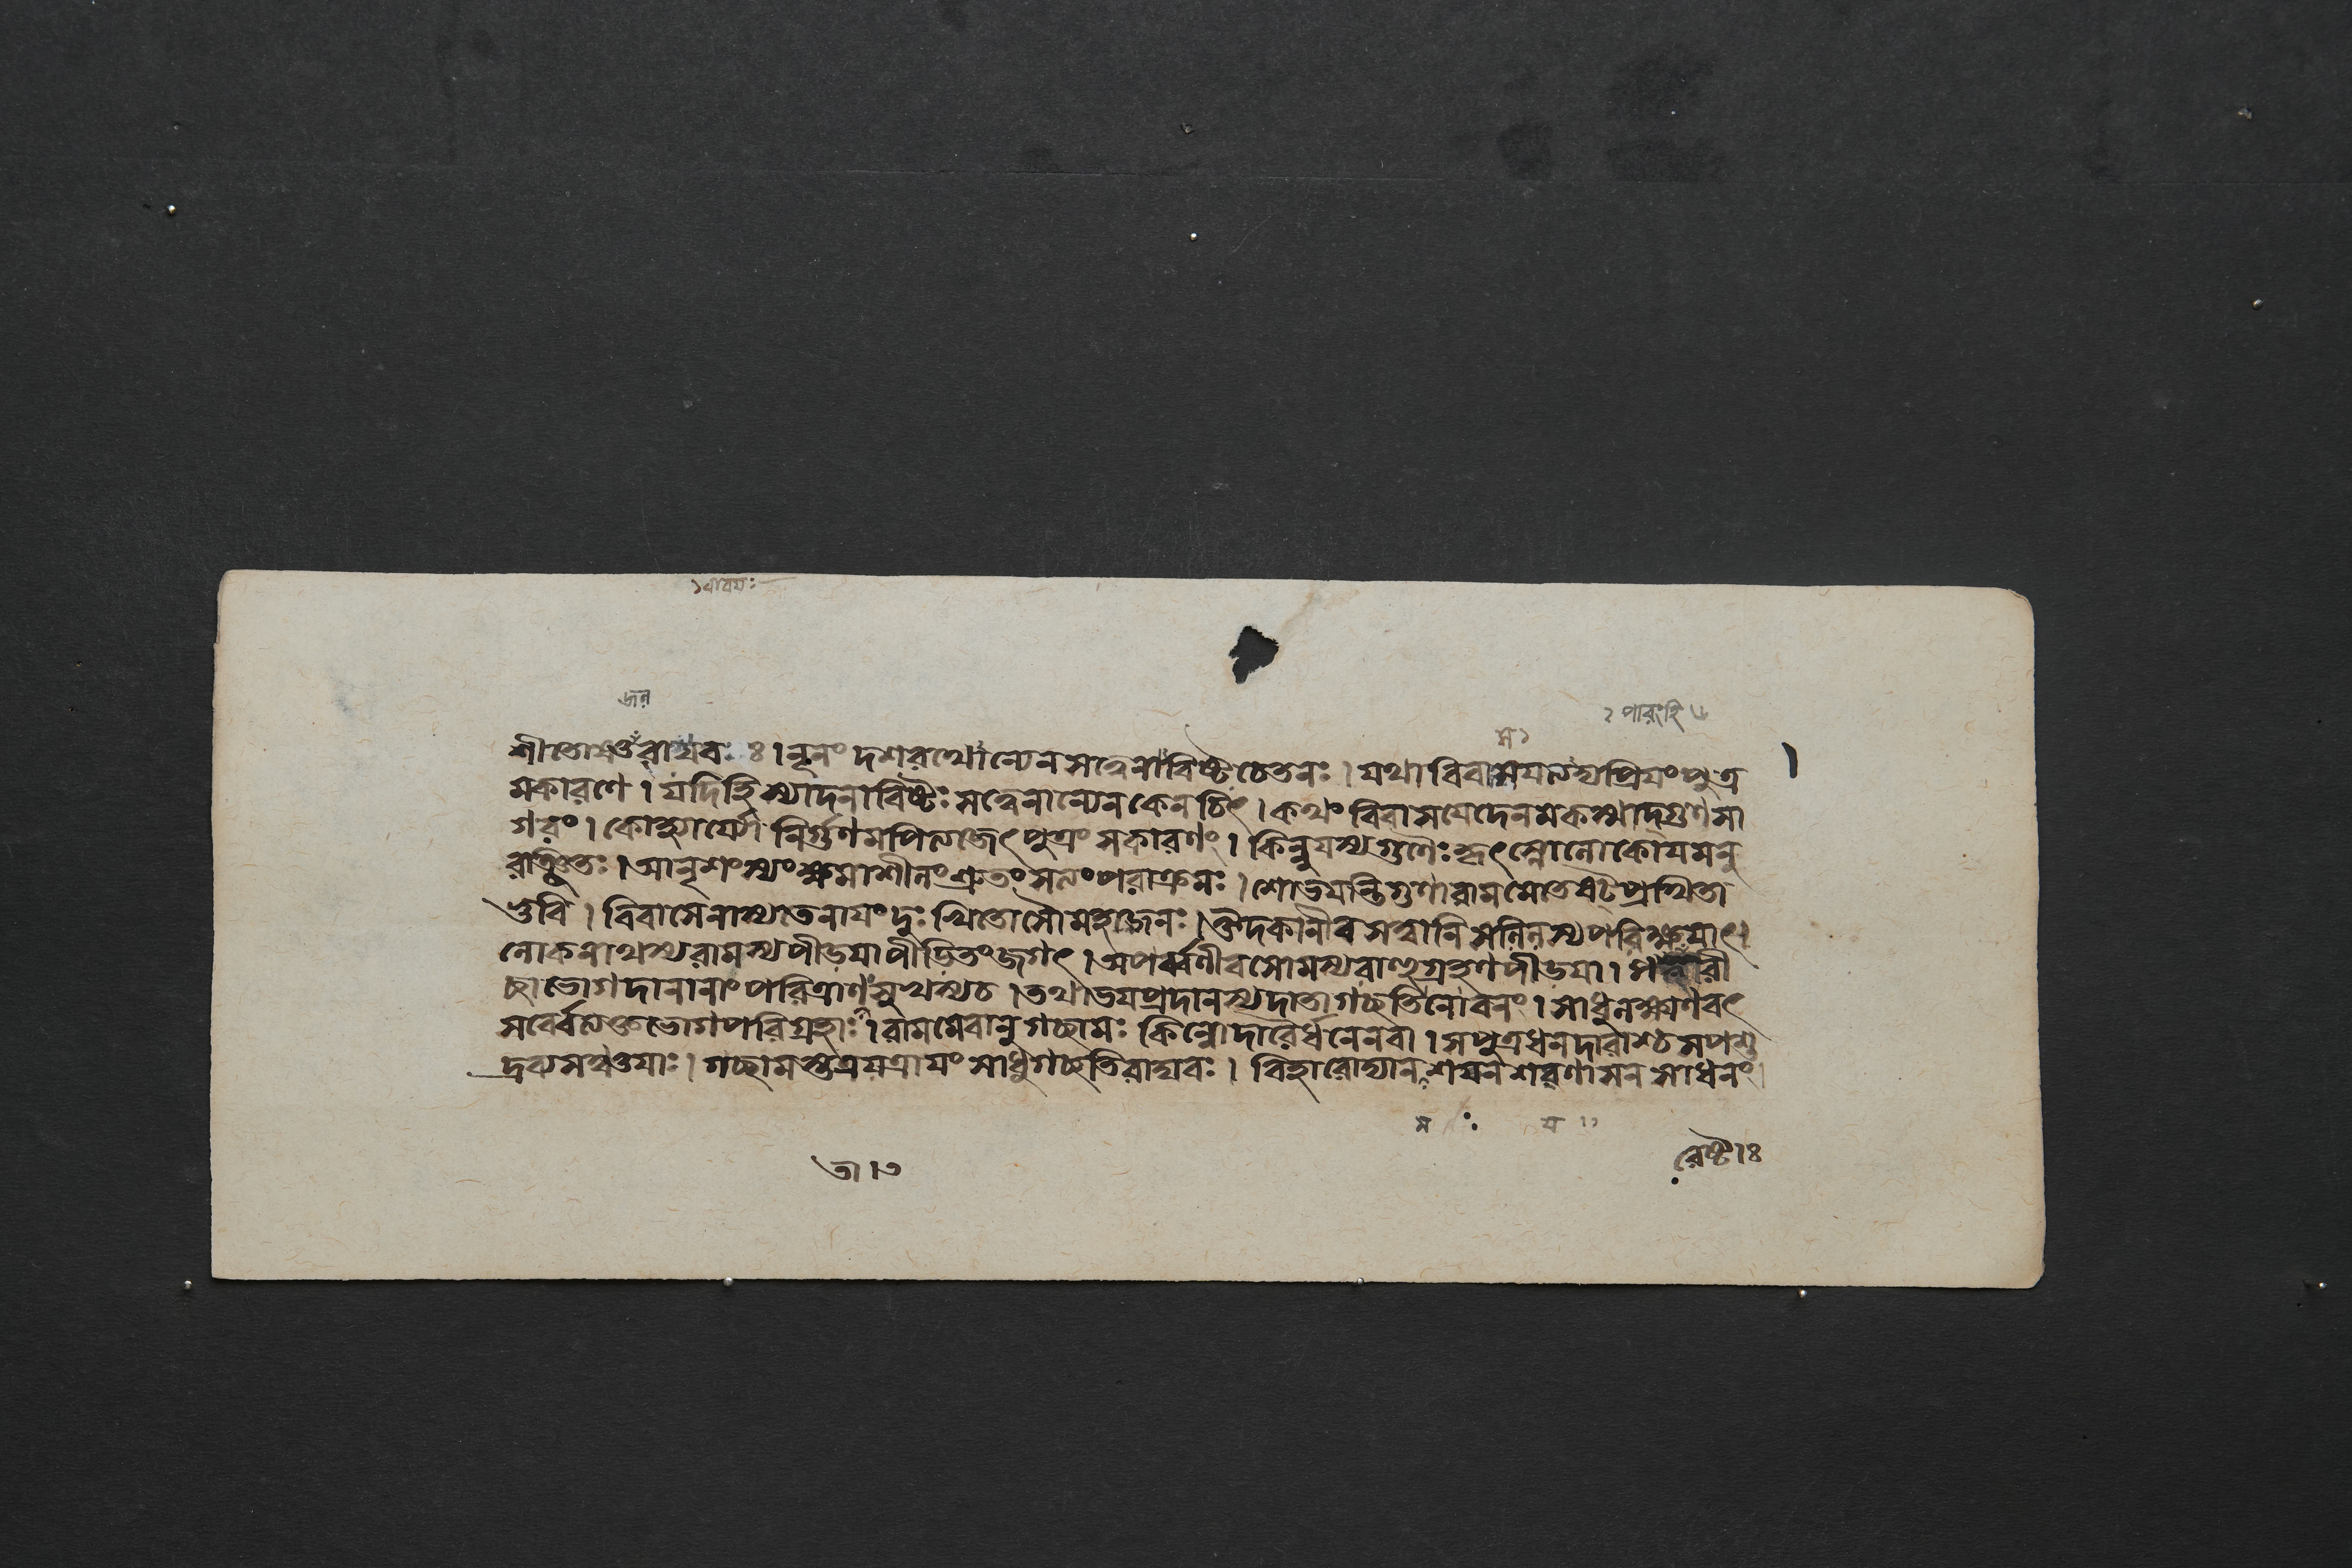 জন
শীতোষ্ণং রাঘবঃ ঃ । নূনং দশরথোন্যেন সত্ত্বেনাবিষ্টচেতনঃ । যথা বিবাসয়ত্যদ্য প্রিয়ং পুত্র
মকারণে । যদি হি স্যাদনাবিষ্টঃ সত্ত্বেনান্যেন কেনচিৎ । কথং বিবাসয়েদেনমকস্মাদ্গুণসা
গরং । কো নির্গুণমপি ত্যজেৎ পুত্রং সকারণং । কিন্নু যস্য গুণৈঃ কৃৎস্নো লোকোয়মনু
রঞ্জিতঃ । আনৃশংস্যং ক্ষমা শীলং শ্রুতং সত্যং পরাক্রমঃ । শোভয়ন্তি গুণা রামমেতে ষট্ প্রথিতা
ভুবি । বিবাসেনাস্য তেনায়ং দুঃখিতোসৌ মহাজনঃ । ঔদকানীব সত্ত্বানি সলিলস্য পরিক্ষয়াৎ ।
লোকনাথস্য রামস্য পীডয়া পীডিতং জগৎ । অপর্ব্বণীব সোমস্য রাহুগ্রহণপীডয়া ।
চ্ছাভোগদানানাং পরিত্রাণসুখস্য চ । তথাভয়প্রদানস্য দাতা গচ্ছতি নো বনং । সাধু লক্ষ্মণবৎ
সর্ব্বে ত্যক্তভোগপরিগ্রহাঃ । রামমেবানুগচ্ছামঃ কিন্নো দারৈর্ধনেন বা । সপুত্রধনদারাশ্চ সপশু
দ্রব্যসঞ্চয়াঃ । গচ্ছামস্তত্র যত্রায়ং সাধু গচ্ছতি রাঘবঃ । বিহারোদ্যানশয়নশরণাসনসাধনং